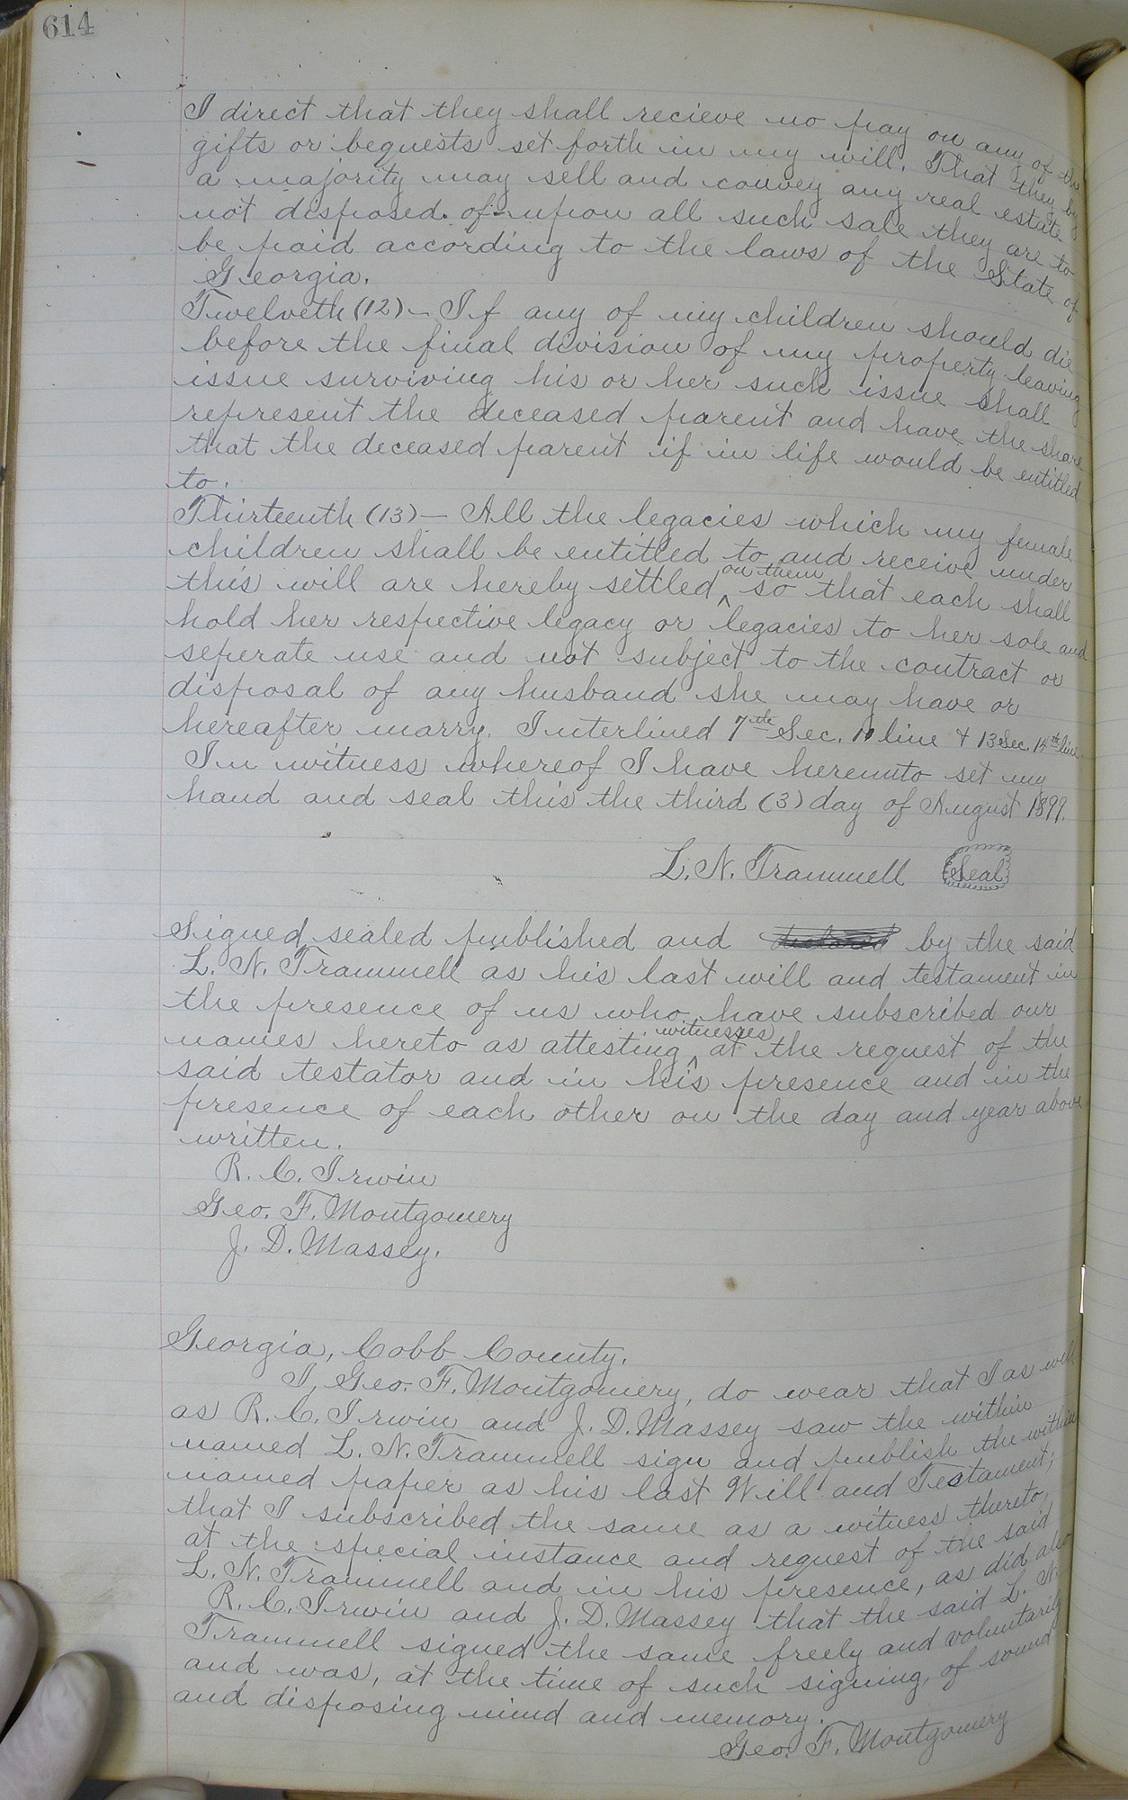 614
I direct that they shall recieve no pay on any of the
gifts or bequests set forth in my will. That they by
a majority may sell and convey any real estate
not disposed of - upon all such sale they are to
be paid according to the laws of the State of
Georgia.
Twelveth (12) - If any of my children should die
before the final division of my property leaving
issue surviving his or her such issue shall
represent the deceased parent and have the share
that the deceased parent if in life would be entitled
to.
Thirteenth (13) - All the legacies which my female
children shall be entitled to and receive under
this will are hereby settled ^on them so that each shall
hold her respective legacy or legacies to her sole and
seperate use and not subject to the contract or
disposal of any husband she may have or
hereafter marry. Interlined 7th Sec. line & 13 Sec. line
In witness whereof I have hereunto set my
hand and seal this the third (3) day of August 1899.
L. N. Trammell Seal
Signed sealed published and declared by the said
L. N. Trammell as his last will and testament in
the presence of us who have subscribed our
names hereto as attesting ^witnesses at the request of the
said testator and in his presence and in the
presence of each other on the day and year above
written.
R. C. Irwin
Geo. F. Montgomery
J. D. Massey.
Georgia, Cobb County.
I, Geo. F. Montgomery, do wear that I as well
as R. C. Irwin and J. D. Massey saw the within
named L. N. Trammell sign and publish the within
named paper as his last Will and Testament;
that I subscribed the same as a witness thereto,
at the special instance and request of the said
L. N. Trammell and in his presence, as did also
R. C. Irwin and J. D. Massey that the said L. N.
Trammell signed the same freely and voluntarily
and was, at the time of such signing, of sound
and disposing mind and memory.
Geo. F. Montgomery